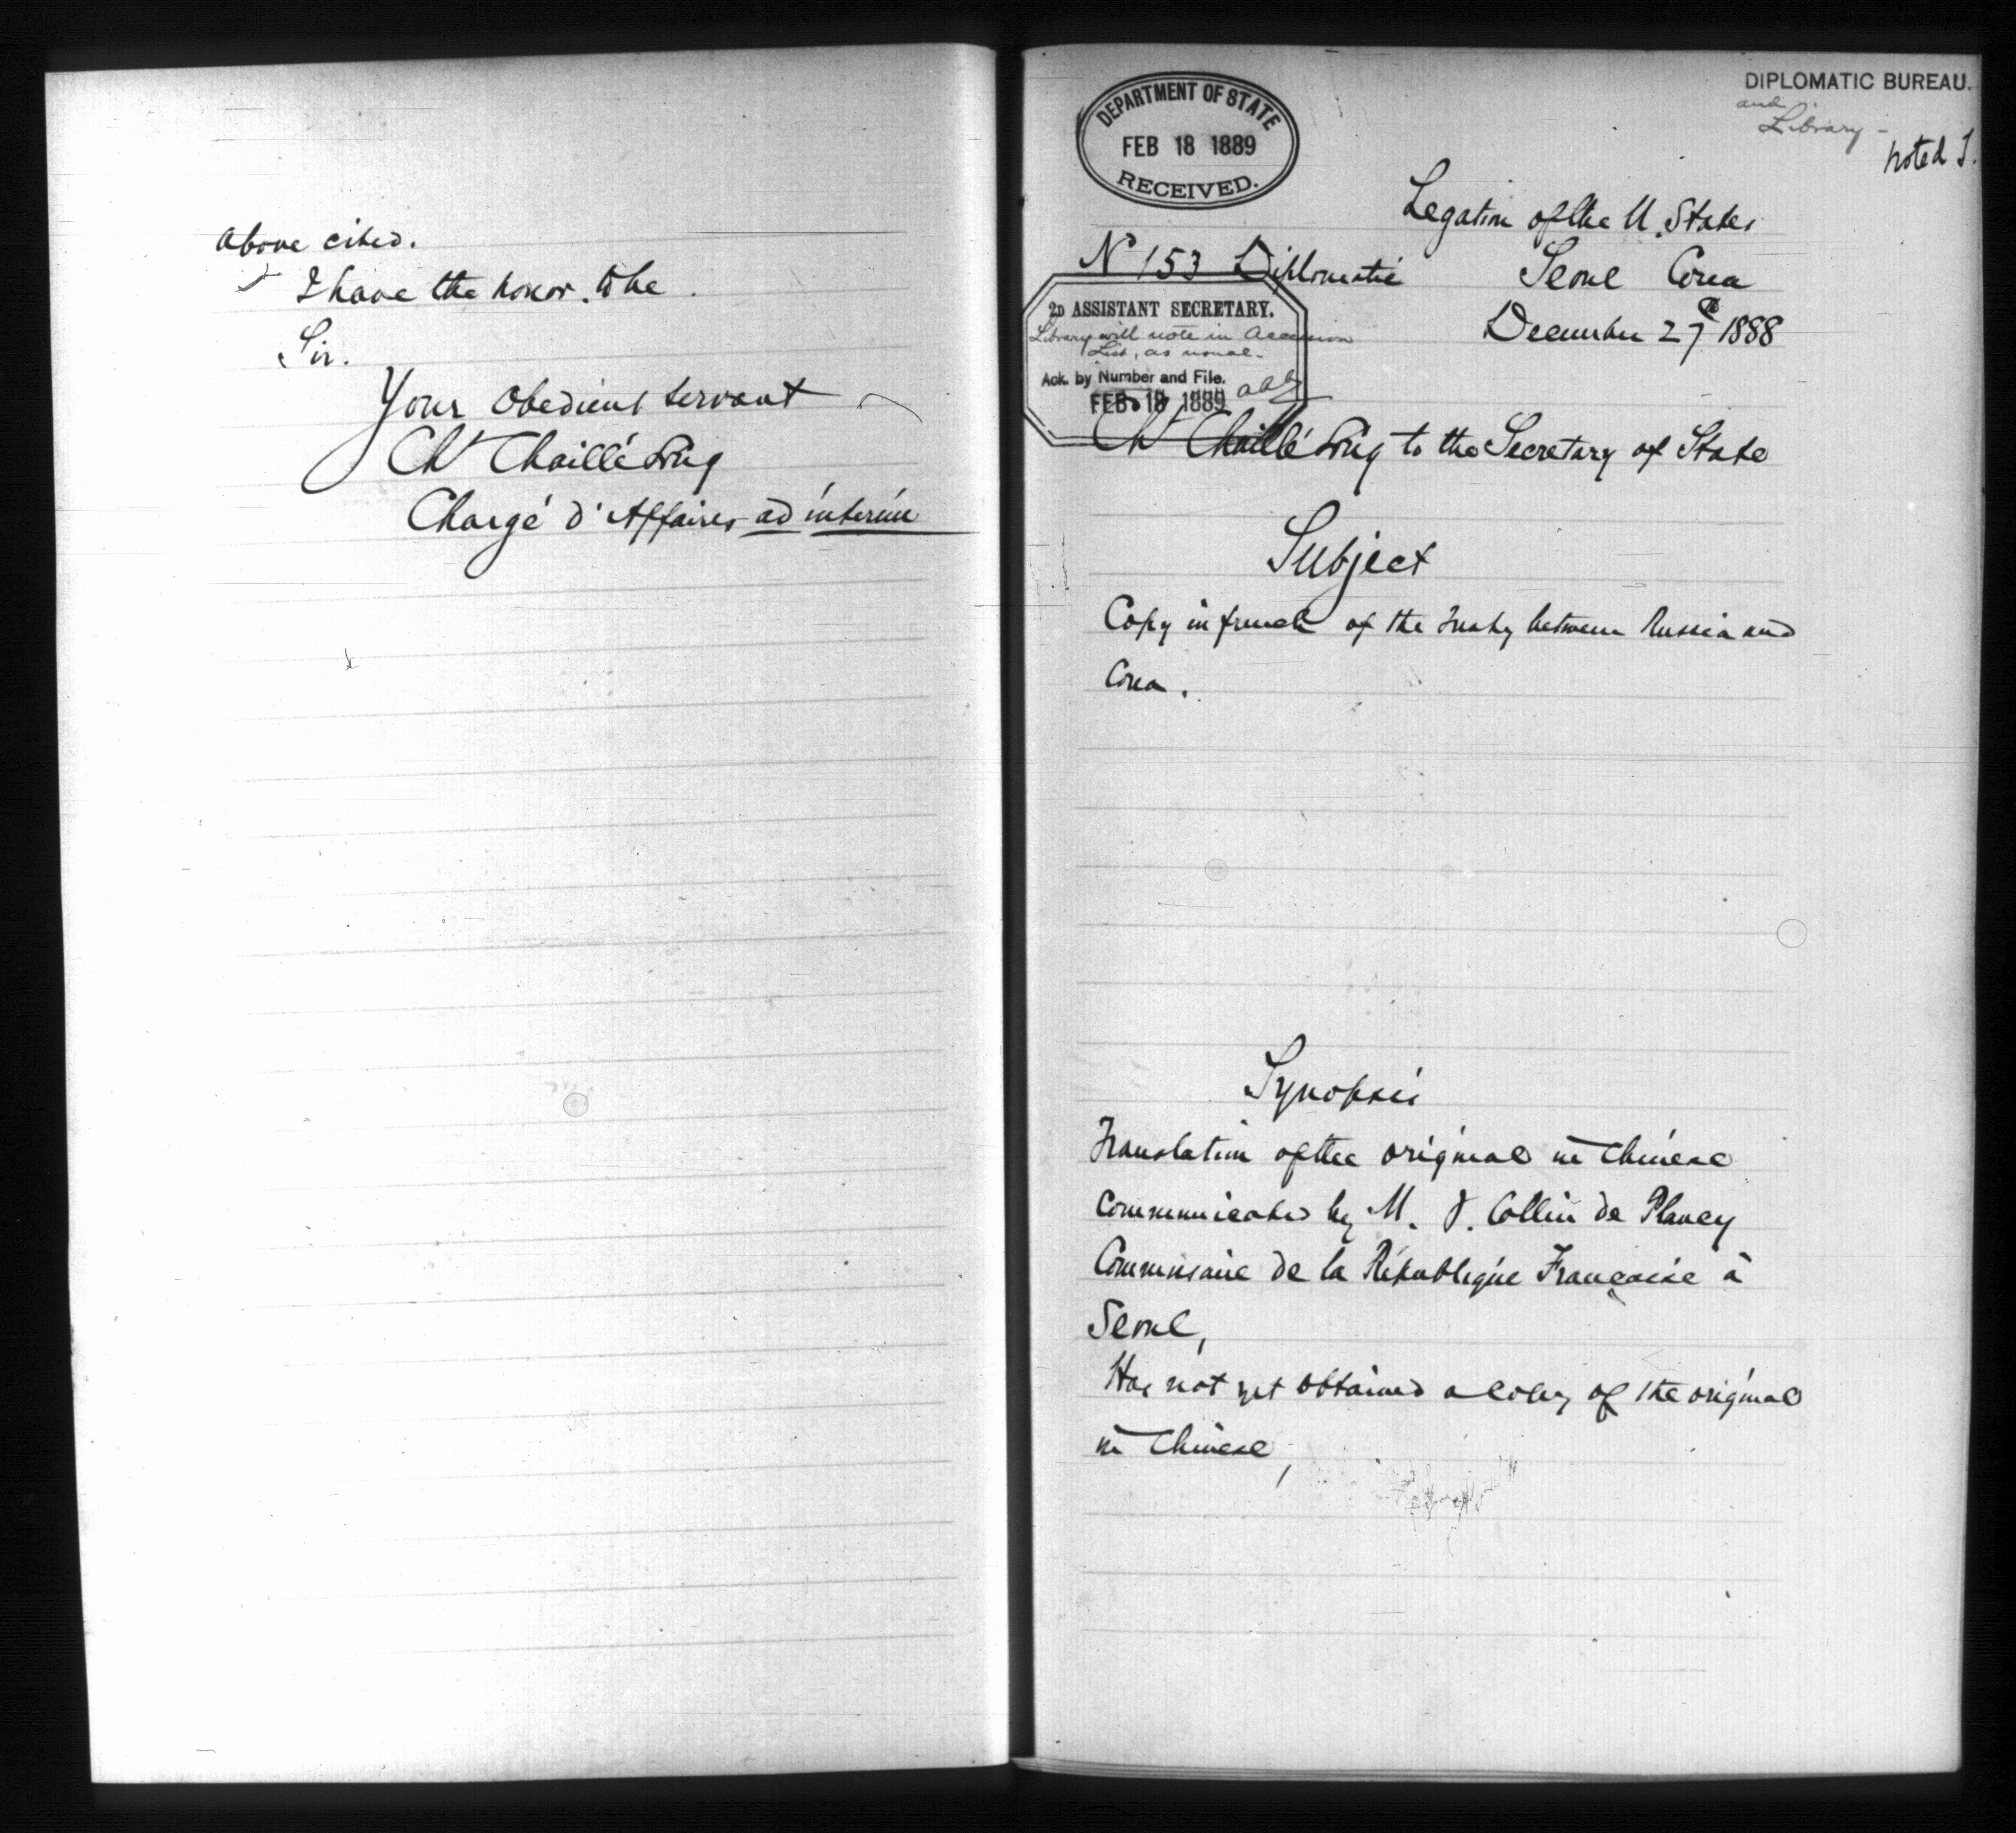 above cited.
I have the honor to be
Sir.
Your obedient servant
Ch Chaillé Long
Chargé d'Affaires ad interim
DIPLOMATIC BUREAU.
and
Library -
noted
DEPARTMENT OF STATE
FEB 18 1889
RECEIVED.
Legation of the U. States
Nº 153 Diplomatic Seoul Corea
December 27th 1888
2D ASSISTANT SECRETARY.
Library will note in Accession
List, as usual.
Ack. by Number and File.
FEB 18 1889
Ch Chaillé Long to the Secretary of State
Subject
Copy in french of the treaty between Russia and
Corea.
Synopsis
Translation of the original in Chinese
communicated by M. V. Collin de Plancy
Commissaire de la République Française à
Seoul,
Has not yet obtained a copy of the original
in Chinese,